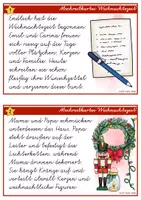 Abschreibkartei Weihnachtszeit
Endlich hat die
Weihnachtszeit begonnen.
Emil und Carina freuen
sich riesig auf die Tage
voller Plätzchen, Kerzen
und Familie. Heute
schreiben sie schon
fleißig ihre Wunschzettel
und verzieren diese.
Abschreibkartei Weihnachtszeit
Mama und Papa schmücken
unterdessen das Haus. Papa
steht draußen auf der
Leiter und befestigt die
Lichterketten, während
Mama drinnen dekoriert.
Sie hängt Kränze auf und
verteilt überall Kerzen und
weihnachtliche Figuren.